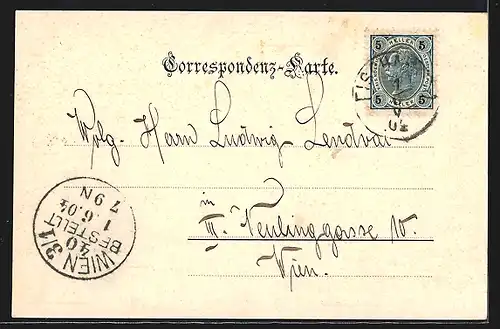 Correspondenz-Karte.
5 5
HELLER
5 5
04
Wolg. Herrn Ludwig Lendvai
in
III. Neulinggasse 10.
Wien.
WIEN 3/1
40
BESTELLT
1.6.04
7 9 N